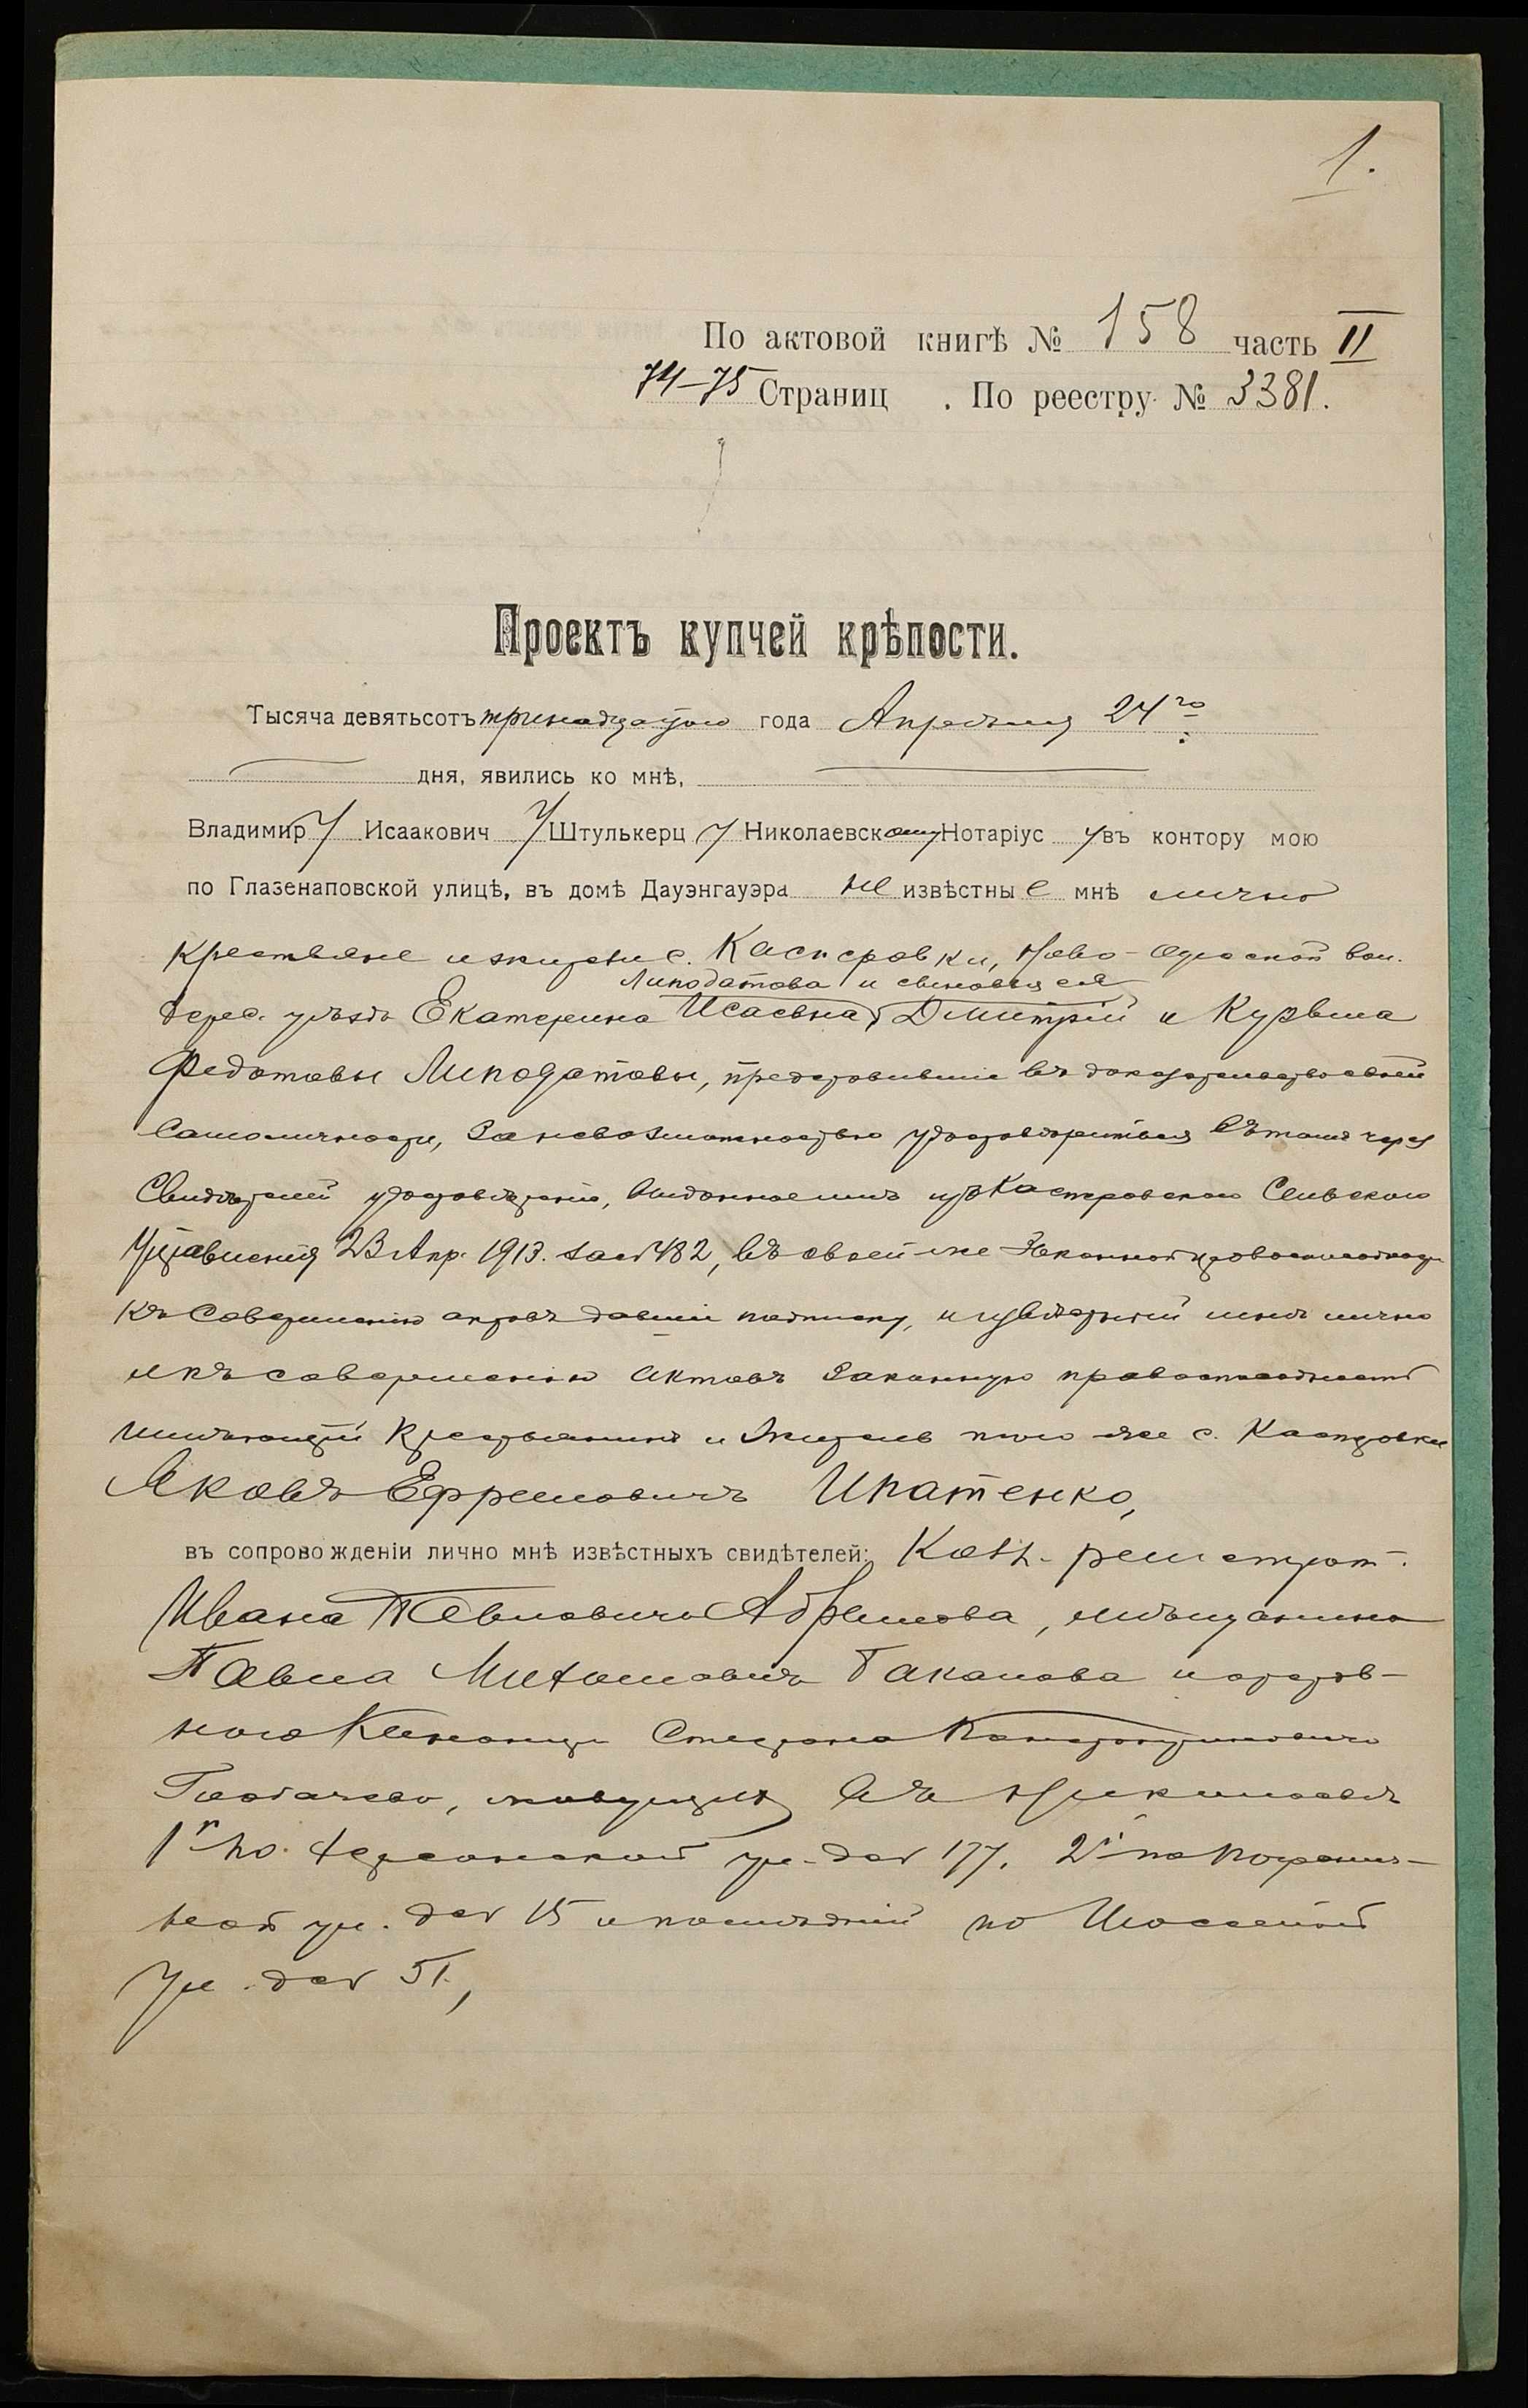 1.
По актовой книгѣ № 158 часть II
74–75 Страниц . По реестру № 3381.
Проектъ купчей крѣпости.
Тысяча девятьсотъ тринадцатого года Апрѣля 24го
дня, явились ко мнѣ,
Владимир у Исаакович у Штулькерц у Николаевскому Нотаріус у въ контору мою
по Глазенаповской улицѣ, въ домѣ Дауэнгауэра не извѣстные мнѣ лично
крестьяне и жители с. Касперовки, Ново-Одесской вол.
Липодатова и сыновья ея
Херс. уѣзда Екатерина Исаевна, Дмитрій и Кузьма
Федотовы Липодатовы, представившіе въ доказательство своей
самоличности, за невозможностью удостовѣриться въ томъ черезъ
Свидѣтелей удостовѣреніе, выданное имъ изъ Касперовского Сельского
Управленія 23 Апр. 1913. за № 482, въ своей же законной правоспособности
къ совершенію актовъ давшіе подписку, и извѣстный мнѣ лично
и къ совершенію актовъ законную правоспособность
имѣющій Крестьянинъ и Житель того же с. Касперовки
Яковъ Ефремовичъ Ипатенко,
въ сопровожденіи лично мнѣ извѣстныхъ свидѣтелей: Колл. регистрат.
Ивана Павловича Абрамова, мѣщанина
Павла Михайловича Такалова и отстав-
ного Степана Константиновича
живущихъ въ Николаевѣ
1й по Херсонской ул. д. № 177, 2й по Погранич-
ной ул. д. № 15 и послѣдній по Шоссейной
ул. д. № 51,